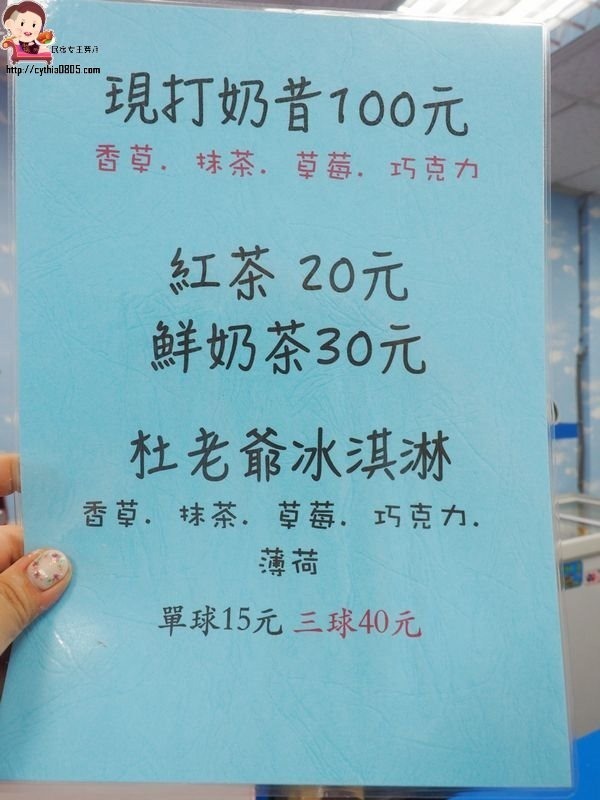 民宿女王芽月
http://cythia0805.com
現打奶昔100元
香草．抹茶．草莓．巧克力
紅茶 20元
鮮奶茶30元
杜老爺冰淇淋
香草．抹茶．草莓．巧克力．
薄荷
單球15元 三球40元